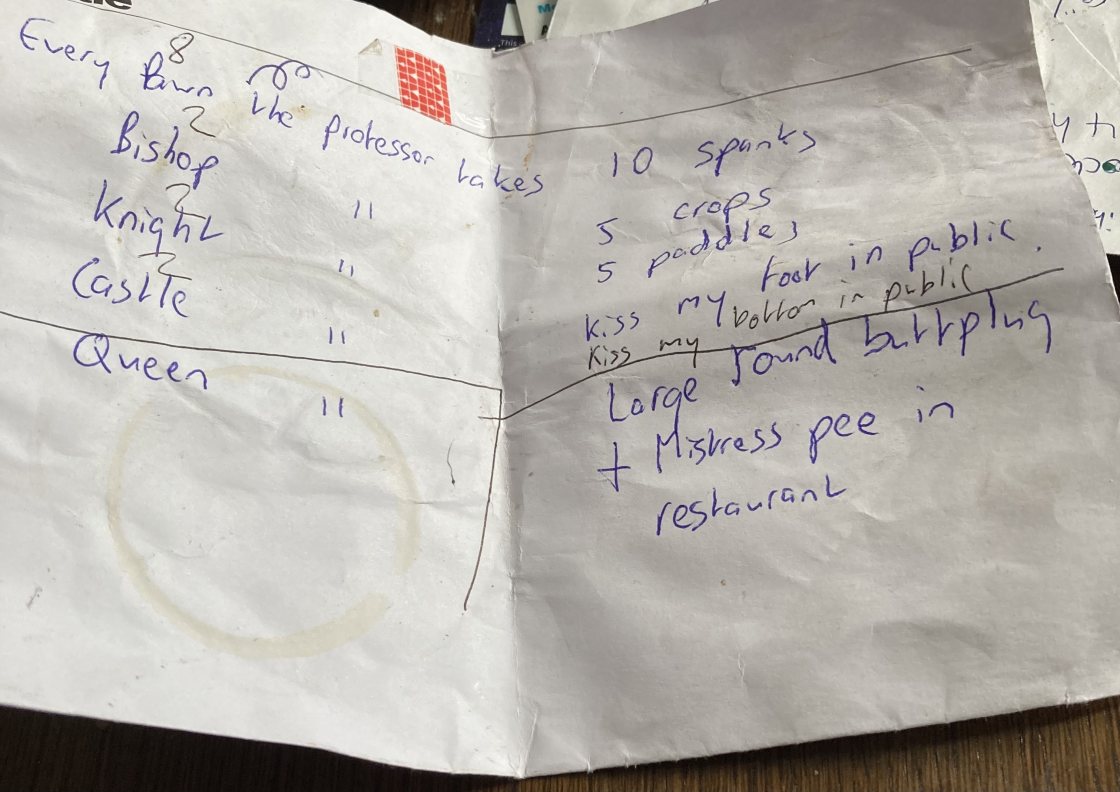 Every Pawn the professor takes 10 spanks
8
Bishop " 5 crops
2
Knight " 5 paddles
2
Castle " kiss my foot in public.
2
kiss my bottom in public
Queen " Large round buttplug
+ Mistress pee in
restaurant